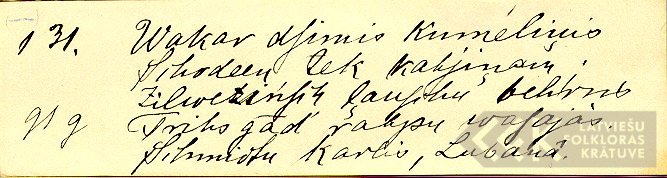 131. Wakar dsimis Kumelinis
Schodeen tek kahjinām;
Zilweziņsch ļauschu behrns
919 Trihs gad' rahpu wasajās.
Schmidtu Karlis, Lubanā.
LATVIEŠU
FOLKLORAS
KRĀTUVE